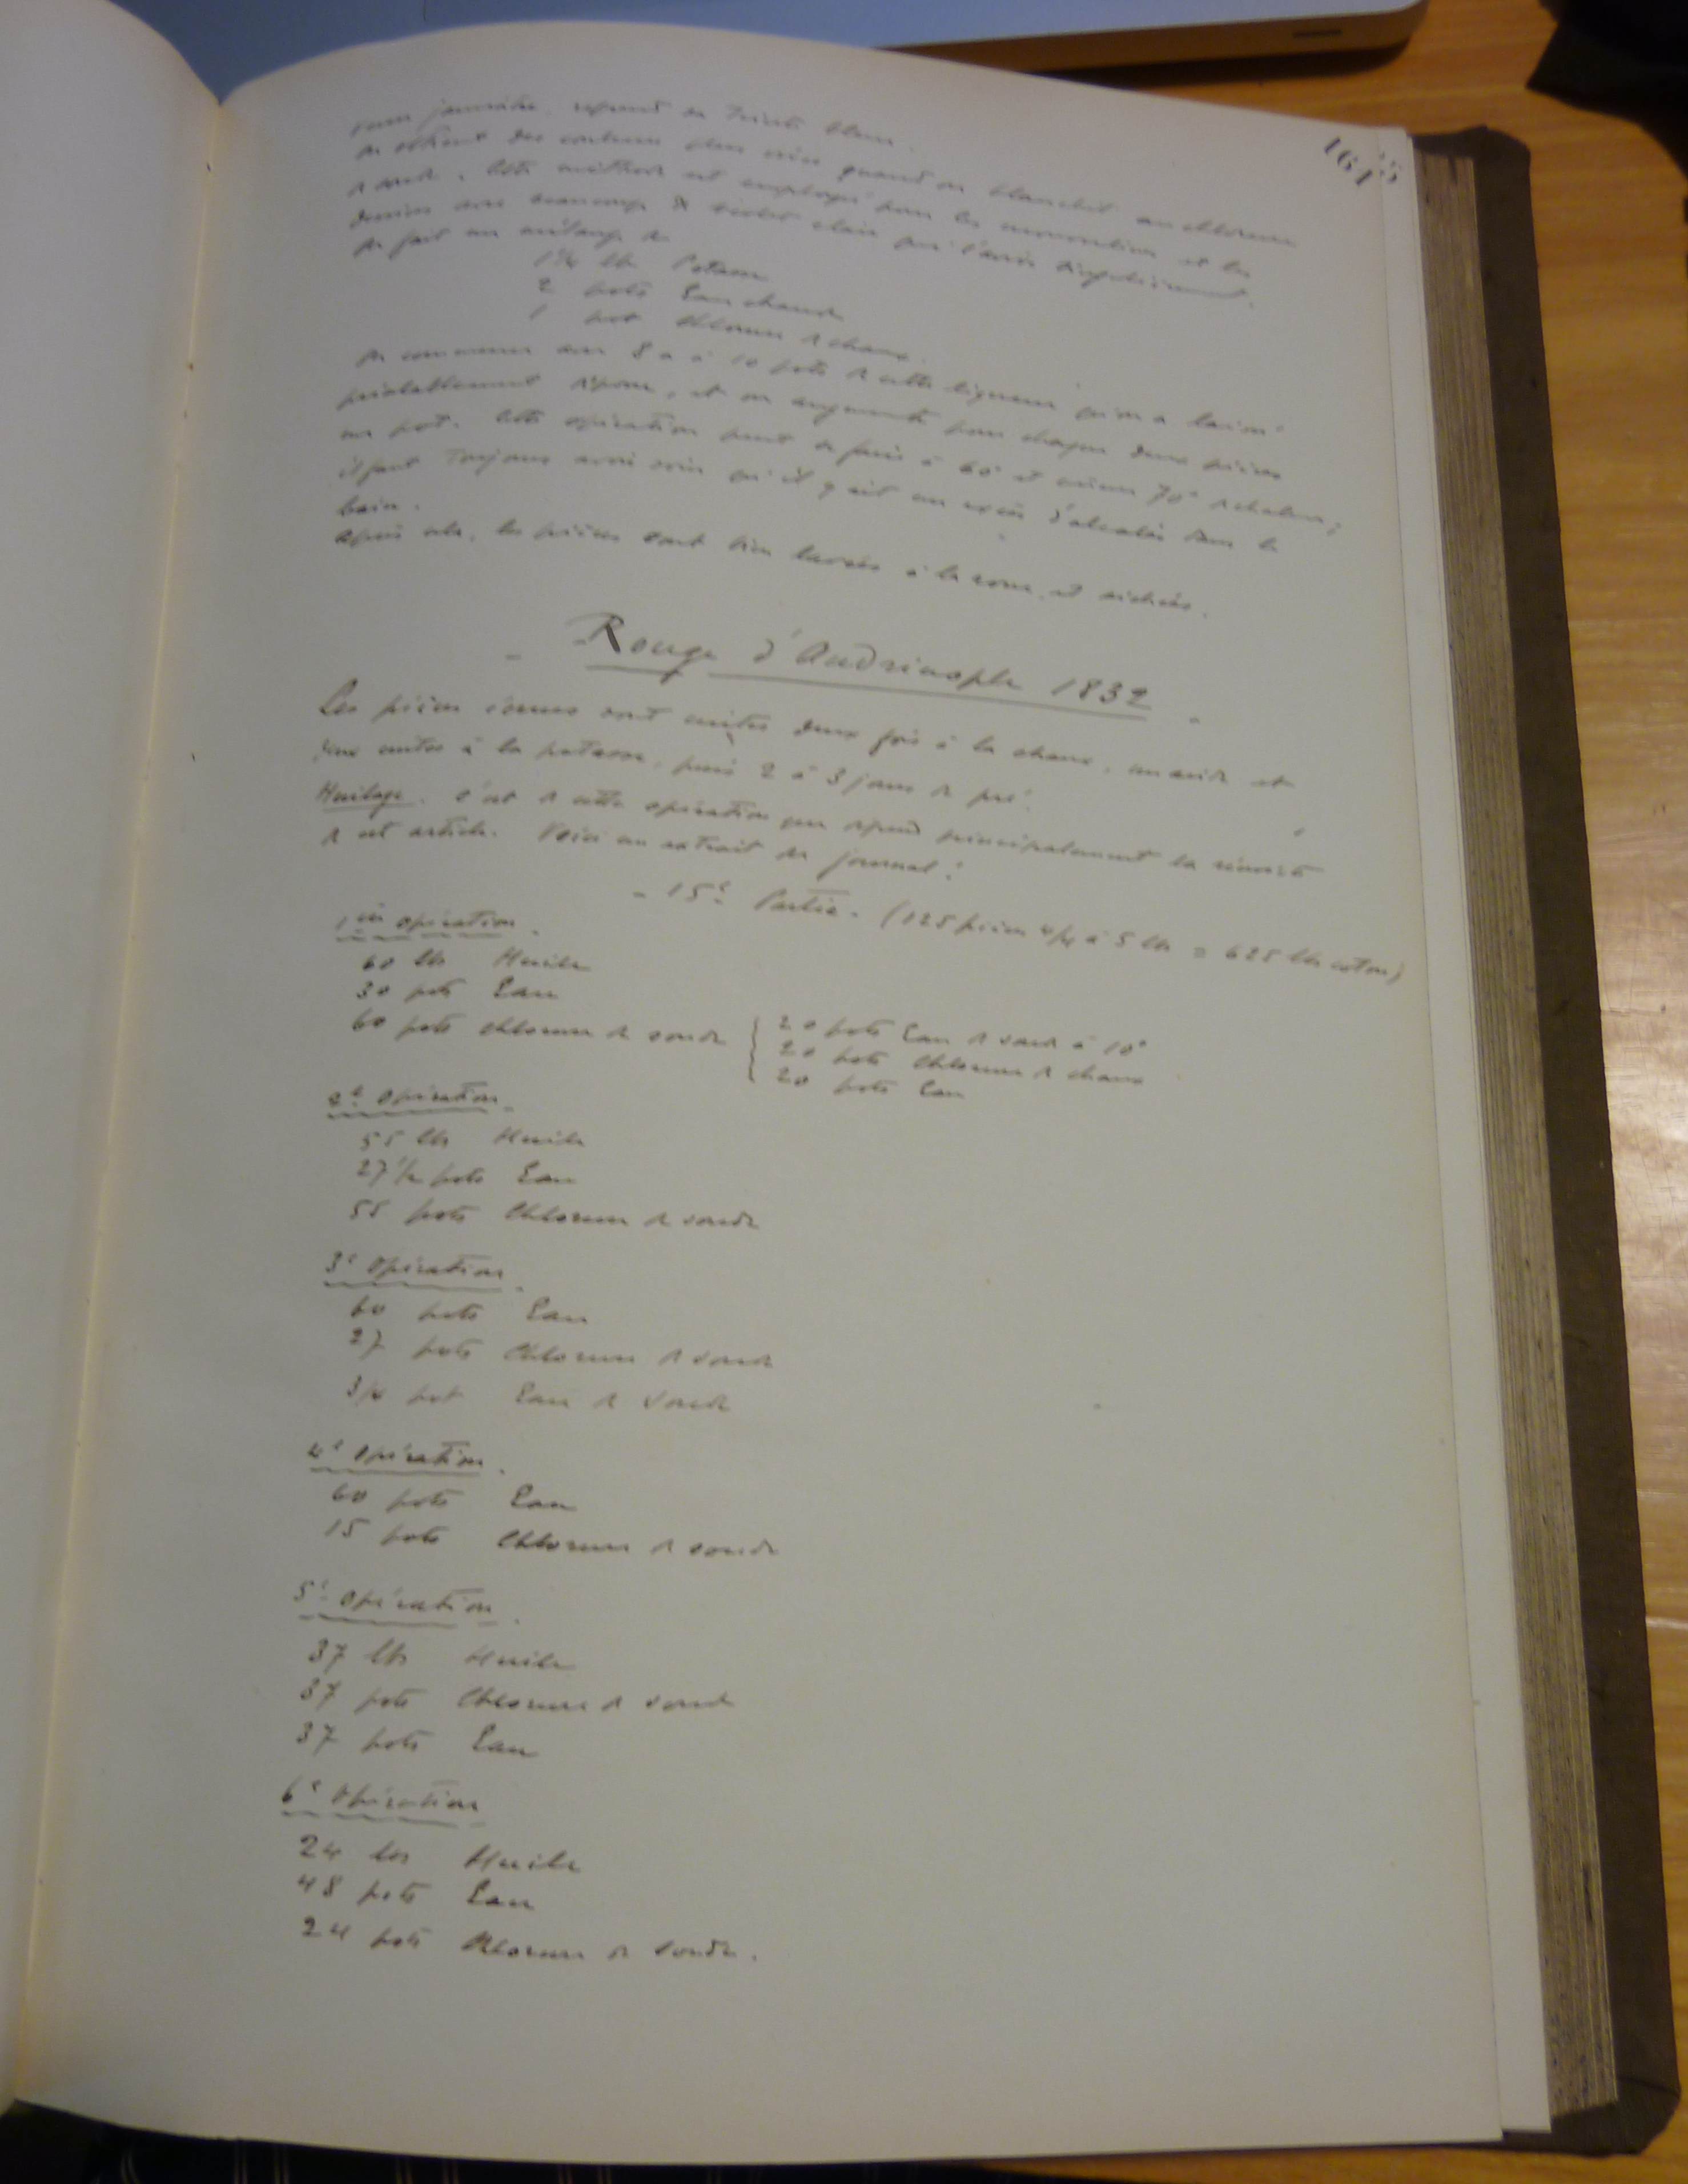 161
jaunâtre reprend sa teinte blanc.
on obtient des couleurs plus vives quand on blanchit au chlorure
de soude. Cette méthode est employée pour les et les
dessins avec beaucoup de violet clair que l'avive simplement.
On fait un mélange de
1 1/4 lb Potasse
2 pots Eau chaude
1 pot Chlorure de chaux.
On commence avec 8 a à 10 pots de cette liqueur qu'on a laissé
préalablement déposer, et on augmente pour chaque deux pièces
un pot. Cette opération peut se faire à 60° et même 70° de chaleur;
il faut toujours avoir soin qu'il y ait un excès d'alcali dans le
bain.
Après cela, les pièces sont bien lavées à la roue, et séchées.
- Rouge d'Andrinople 1832 -
Les pièces écrues sont cuites deux fois à la chaux, un acide et
deux cuites à la potasse, puis 2 à 3 jours de pré.
Huilage. C'est de cette opération que dépend principalement la réussite
de cet article. Voici un extrait du journal:
- 15e Partie. (125 pièces 4/4 à 5 lbs = 625 lbs coton)
1ère opération.
60 lbs Huile
30 pots Eau
60 pots chlorure de soude { 20 pots Eau de soude à 10°
20 pots Chlorure de chaux
20 pots Eau
2e Opération.
55 lbs Huile
27 1/2 pots Eau
55 pots Chlorure de soude
3e Opération.
60 pots Eau
27 pots Chlorure de soude
3/4 pot Eau de Soude
4e Opération.
60 pots Eau
15 pots Chlorure de soude
5e Opération.
37 lbs Huile
37 pots Chlorure de soude
37 pots Eau
6e Opération
24 lbs Huile
48 pots Eau
24 pots Chlorure de Soude.